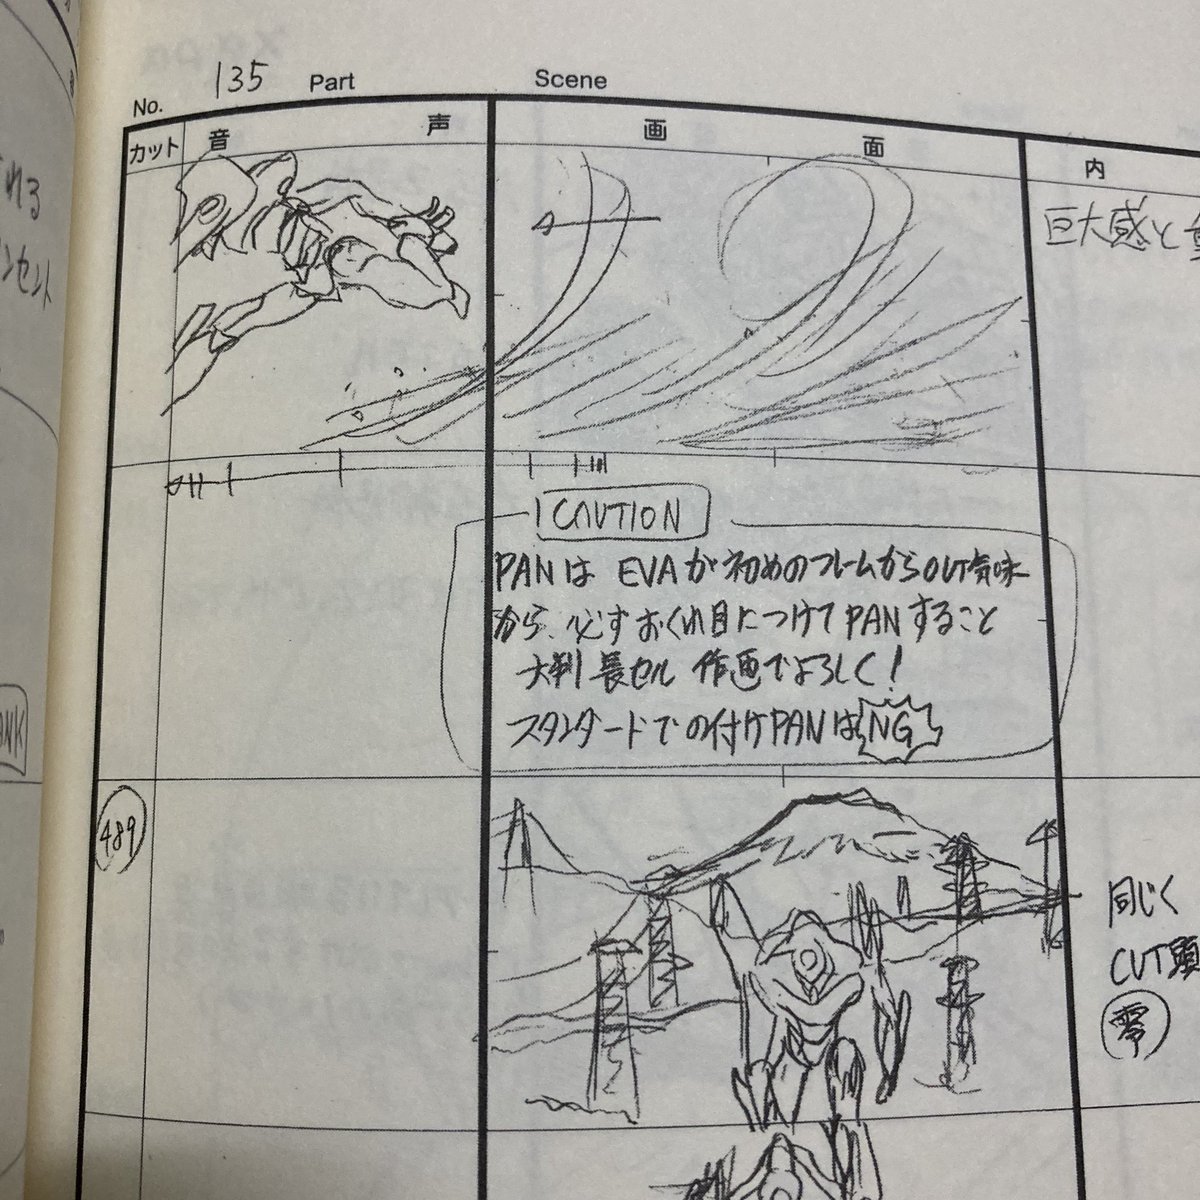 No. 135 Part Scene
カット 音 声 画 面 内
巨大感と
! CAUTION
PANは EVAが初めのフレームからOUT気味
から、必ずおくれ目につけてPANすること
大判長セル 作画でよろしく!
スタンダードでの付けPANはNG
489
同じく
CUT頭
零
れる
ンセント